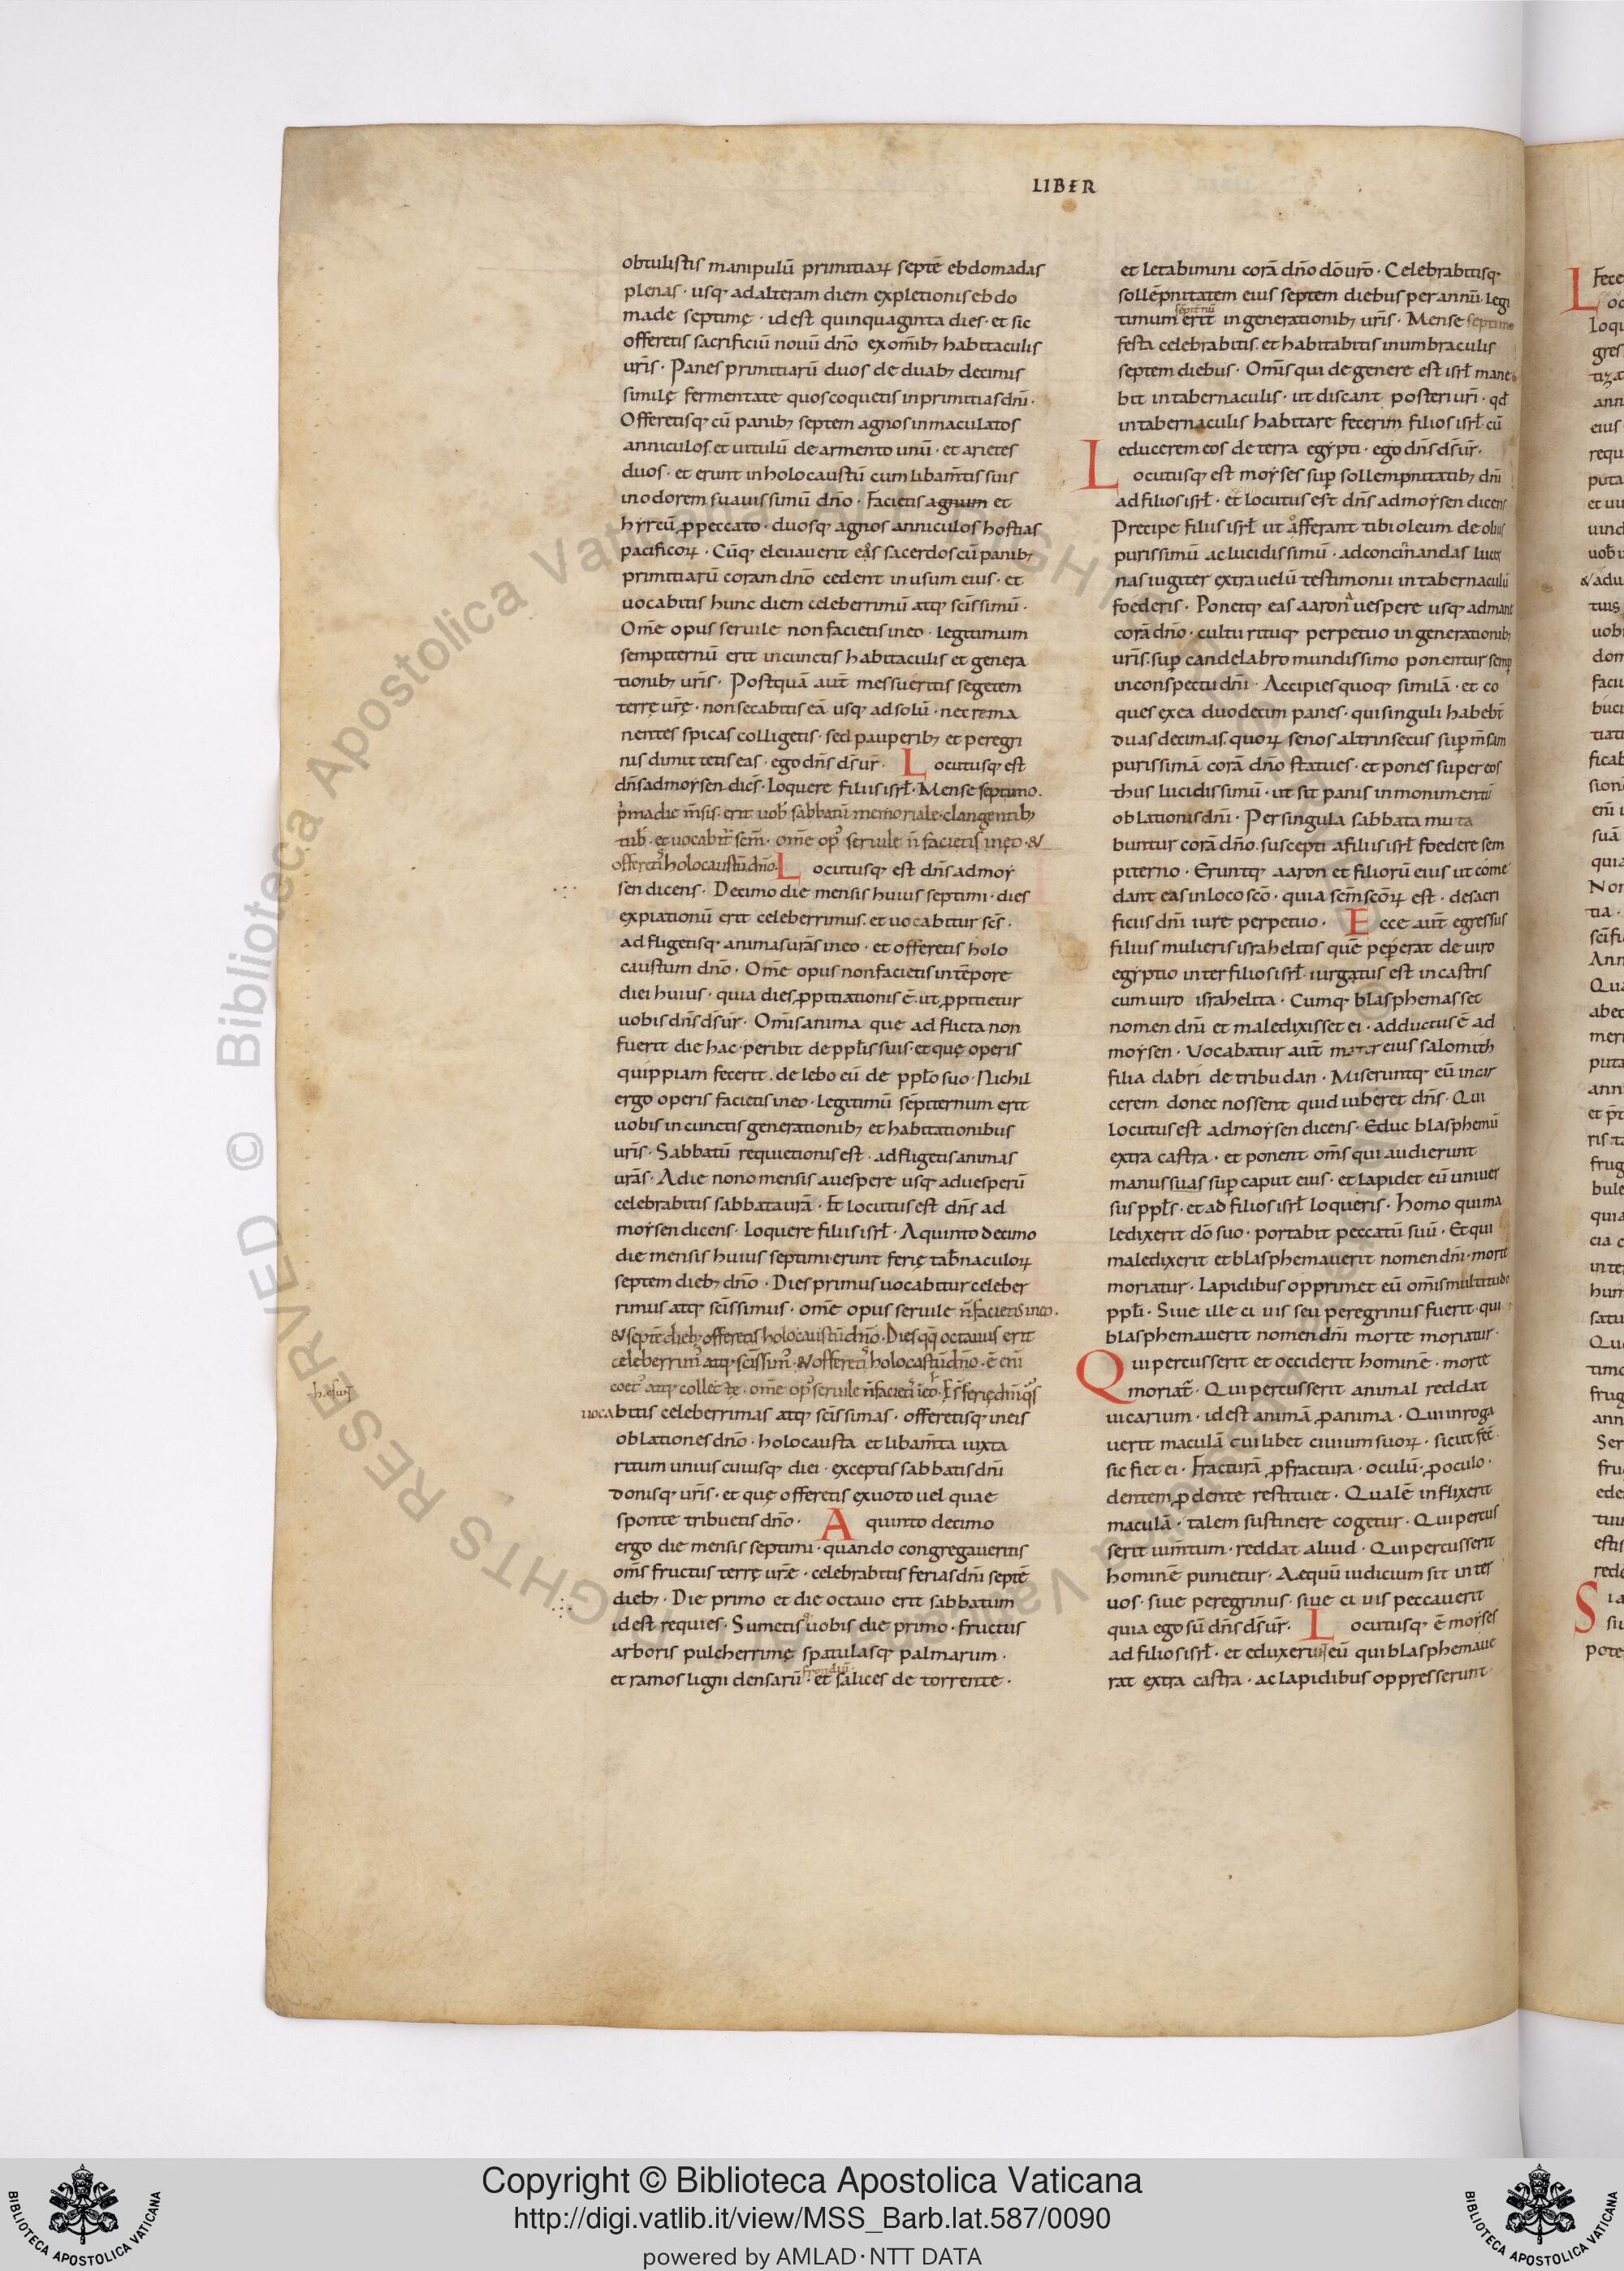 LIBER
obtulistis manipulū primitiaꝝ septē ebdomadas
plenas · usqꝫ ad alteram diem expletionis ebdo
made septimę · id est quinquaginta dies · et sic
offeretis sacrificiū nouū dño ex om̄ibꝫ habitaculis
ur̄is · Panes primitiarū duos de duabꝫ decimis
similę fermentate quos coquetis in primitias dñi ·
Offeretisqꝫ cū panibꝫ septem agnos inmaculatos
anniculos · et uitulū de armento unū · et arietes
duos · et erunt in holocaustū cum libam̄tis suis
in odorem suauissimū dño · Facietis agnum et
hyrcū ꝓ peccato · duosqꝫ agnos anniculos hostias
pacificoꝝ · Cūqꝫ eleuauerit eas sacerdos cū panibꝫ
primitiarū coram dño cedent in usum eius · et
uocabitis hunc diem celeberrimū atqꝫ sc̄issimū ·
Om̄e opus seruile non facietis in eo · legitimum
sempiternū erit in cunctis habitaculis et genera
tionibꝫ ur̄is · Postquā aut̄ messueritis segetem
terrę ur̄ę · non secabitis eā usqꝫ ad solū · nec rema
nentes spicas colligetis · sed pauperibꝫ et peregri
nis dimittetis eas · ego dñs d̄s ur̄ · Locutusqꝫ est
dñs ad moysen dic̄s · Loquere filiis isrł · Mense septimo ·
p̄ma die m̄sis · erit uob̄ sabbatū memoriale · clangentibꝫ
tub̄ · et uocabit̄ sc̄m · om̄e op᾽ seruile n̄ facietis in eo · &
offeretis holocaustū dño · Locutusqꝫ est dñs ad moy
sen dicens · Decimo die mensis huius septimi · dies
expiationū erit celeberrimus · et uocabitur sc̄s ·
adfligetisqꝫ animas ur̄as in eo · et offeretis holo
caustum dño · Om̄e opus non facietis in tēpore
diei huius · quia dies ꝓpitiationis ē · ut ꝓpitietur
uobis dñs d̄s ur̄ · Om̄is anima que adflicta non
fuerit die hac · peribit de ppłis suis · et quę operis
quippiam fecerit · delebo eū de ppło suo · Nichil
ergo operis facietis in eo · legitimū sēpiternum erit
uobis in cunctis generationibꝫ et habitationibus
ur̄is · Sabbatū requietionis est · adfligetis animas
ur̄as · A die nono mensis a uespere usqꝫ ad uesperū
celebrabitis sabbata ur̄a · Et locutus est dñs ad
moysen dicens · Loquere filiis isrł · A quinto decimo
die mensis huius septimi · erunt ferię tab̄naculoꝝ
septem diebꝫ dño · Dies primus uocabitur celeber
rimus atqꝫ sc̄issimus · om̄e opus seruile n̄ facietis in eo ·
& septē diebꝫ offeretis holocaustū dño · Dies qq̄ octauus erit
celeberrim᾽ atqꝫ sc̄issim᾽ · & offeretis holocastū dño · ē eni
coet᾽ atqꝫ collectę · om̄e op᾽ seruile n̄ facietis ī eo · H̨ s̄ ferię dñi q᾽s
h. esunt
uocabitis celeberrimas atqꝫ sc̄issimas · offeretisqꝫ in eis
oblationes dño · holocausta et libam̄ta iuxta
ritum unius cuiusqꝫ diei · exceptis sabbatis dñi
donisqꝫ ur̄is · et quę offeretis ex uoto uel quae
sponte tribuetis dño · A quinto decimo
ergo die mensis septimi · quando congregaueritis
om̄s fructus terrę ur̄ae · celebrabitis ferias dñi septē
diebꝫ · Die primo et die octauo erit sabbatum
id est requies · Sumetisqꝫ uobis die primo · fructus
arboris pulcherrimę spatulasqꝫ palmarum ·
frondiū
et ramos ligni densarū · et salices de torrente ·
et letabimini corā dño dō uro · Celebrabitisqꝫ
sollēpnitatem eius septem diebus per annū · legi
septēnū
timum erit in generationibꝫ ur̄is · Mense septimo
festa celebrabitis · et habitabitis in umbraculis
septem diebus · Om̄is qui de genere est isrł mane
bit in tabernaculis · ut discant posteri uri · qd̄
in tabernaculis habitare fecerim filios isrł · cū
educerem eos de terra egypti · ego dñs d̄s ur̄ ·
Locutusqꝫ est moyses sup̄ sollempnitatibꝫ dñi
ad filios isrł · et locutus est dñs ad moysen dicens
Precipe filiis isrł ut afferant tibi oleum de oliuis
purissimū ac lucidissimū · ad concinnandas lucer
nas iugiter extra uelū testimonii in tabernaculū
foederis · Ponetqꝫ eas aaron a uespere usqꝫ ad mane
corā dño · cultu rituqꝫ perpetuo in generationibꝫ
ur̄is · sup̄ candelabro mundissimo ponentur semp̄
in conspectu dñi · Accipies quoqꝫ similā · et co
ques ex ea duodecim panes · qui singuli habebt̄
duas decimas · quoꝝ senos altrinsecus sup̄ m̄sam
purissimā corā dño statues · et pones super eos
thus lucidissimū · ut sit panis in monimentū
oblationis dñi · Per singula sabbata muta
buntur corā dño · suscepti a filiis isrł foedere sem
piterno · Eruntqꝫ aaron et filiorū eius ut come
dant eas in loco sc̄o · quia sc̄m sc̄oꝝ est · de sacri
ficiis dñi iure perpetuo · Ecce aut̄ egressus
filius mulieris israhelitis quē pepererat de uiro
egyptio inter filios isrł · iurgatus est in castris
cum uiro israhelita · Cumqꝫ blasphemasset
nomen dñi et maledixisset ei · adductus ē ad
moysen · Vocabatur aut̄ mater eius salomith
filia dabri de tribu dan · Miseruntqꝫ eū in car
cerem donec nossent quid iuberet dñs · Qui
locutus est ad moysen dicens · Educ blasphemū
extra castra · et ponent om̄s qui audierunt
manus suas sup̄ caput eius · et lapidet eū uniuer
sus ppłs · et ad filios isrł loqueris · Homo qui ma
ledixerit dō suo · portabit peccatū suū · Et qui
maledixerit et blasphemauerit nomen dñi · morte
moriatur · Lapidibus opprimet eū om̄is multitudo
ppłi · Siue ille ciuis seu peregrinus fuerit · qui
blasphemauerit nomen dñi morte moriatur ·
Qui percusserit et occiderit hominē · morte
moriat̄ · Qui percusserit animal reddat
uicarium · id est animā ꝓ anima · Qui inroga
uerit maculā cuilibet ciuium suoꝝ · sicut fec̄ ·
sic fiet ei · Fracturā ꝓ fractura · oculū · ꝓ oculo ·
dentem ꝓ dente restituet · Qualē inflixerit
maculā · talem sustinere cogetur · Qui percus
serit ium̄tum · reddat aliud · Qui percusserit
hominē punietur · Aequū iudicium sit inter
uos · siue peregrinus · siue ciuis peccauerit
quia ego sū dñs d̄s ur̄ · Locutusqꝫ ē moyses
ad filios isrł · et eduxerunt eū qui blasphemaue
rat extra castra · ac lapidibus oppresserunt ·
Copyright © Biblioteca Apostolica Vaticana
http://digi.vatlib.it/view/MSS_Barb.lat.587/0090
powered by AMLAD·NTT DATA
BIBLIOTECA APOSTOLICA VATICANA
BIBLIOTECA APOSTOLICA VATICANA